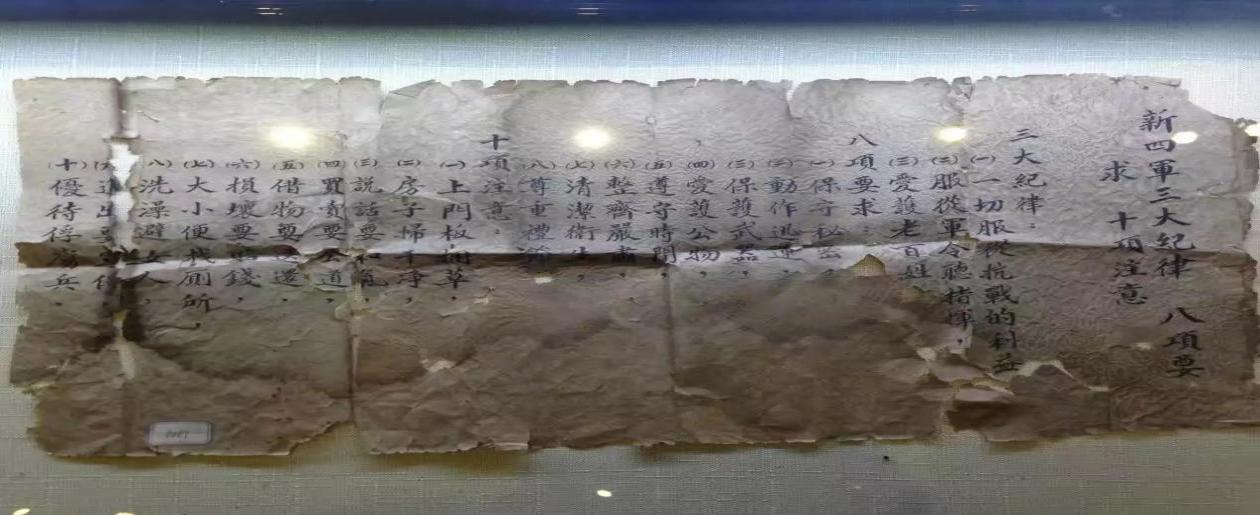 新四軍三大紀律 八項要
求 十項注意
三大紀律：
(一)一切服從抗戰的利益
(二)服從軍令聽指揮，
(三)愛護老百姓
八項要求：
(一)保守秘密，
(二)動作迅速，
(三)保護武器，
(四)愛護公物，
(五)遵守時間，
(六)整齊嚴肅，
(七)清潔衛生，
(八)尊重禮節，
十項注意：
(一)上門板捆草，
(二)房子掃乾淨，
(三)說話要和氣，
(四)買賣要公道
(五)借物要送還，
(六)損壞要賠錢，
(七)大小便找厠所，
(八)洗澡避女人，
(九)進出要宣傳
(十)優待俘虜兵，